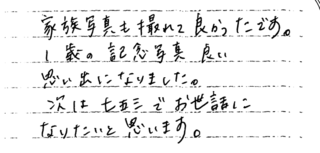 家族写真も撮れて良かったです。
1歳の記念写真 良い
思い出になりました。
次は七五三でお世話に
なりたいと思います。